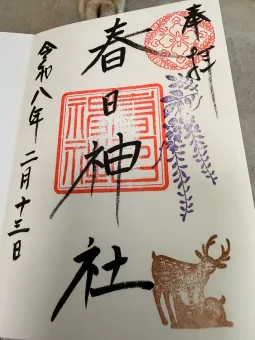 奉拝
春日神社
令和八年二月十三日